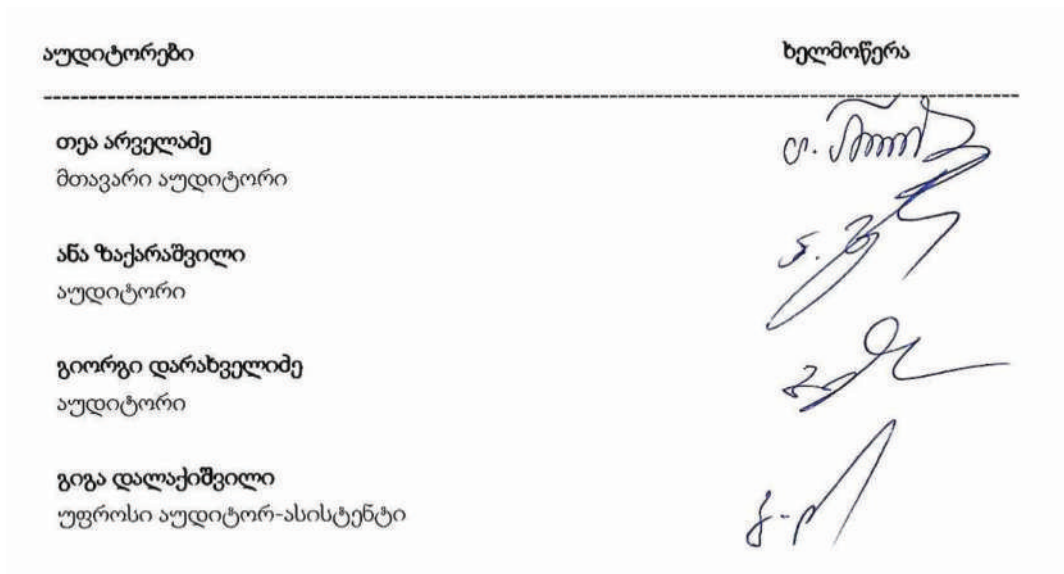 აუდიტორები ხელმოწერა
თეა არველაძე
მთავარი აუდიტორი
ანა ზაქარაშვილი
აუდიტორი
გიორგი დარახველიძე
აუდიტორი
გიგა დალაქიშვილი
უფროსი აუდიტორ-ასისტენტი